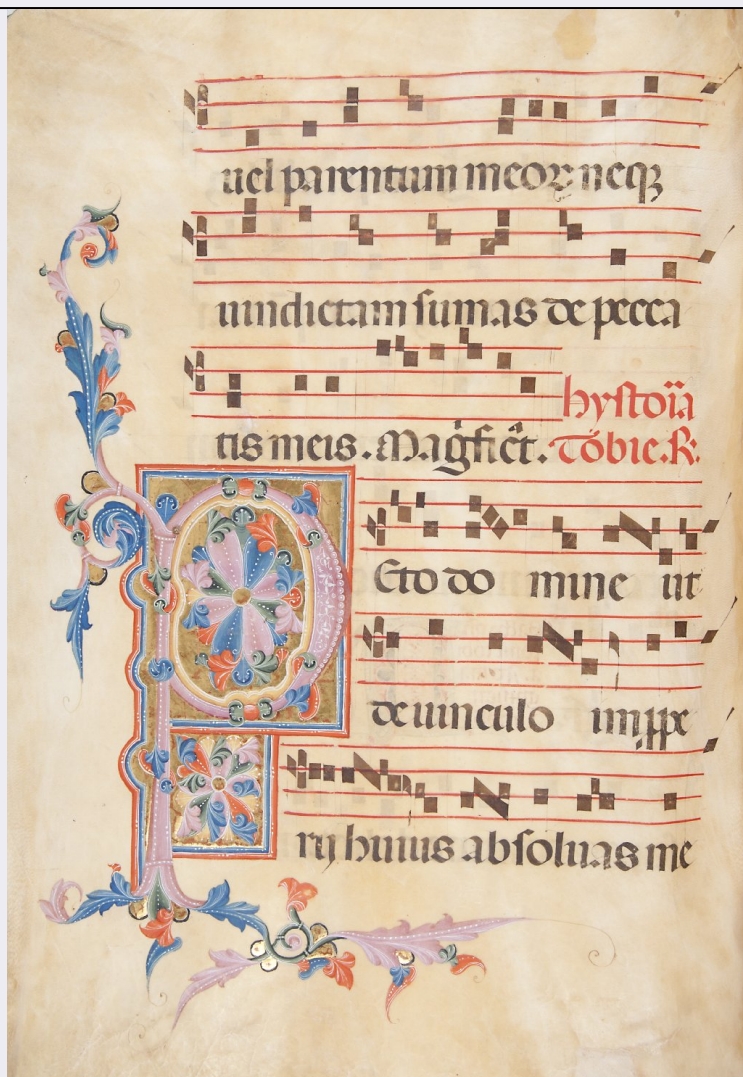 uel parentum meoꝝ neqꝫ
uindictam sumas de pecca
tis meis. Magfict. hystoria
Tobie. R.
Peto domine ut
de uinculo imppe
rij huius absoluas me